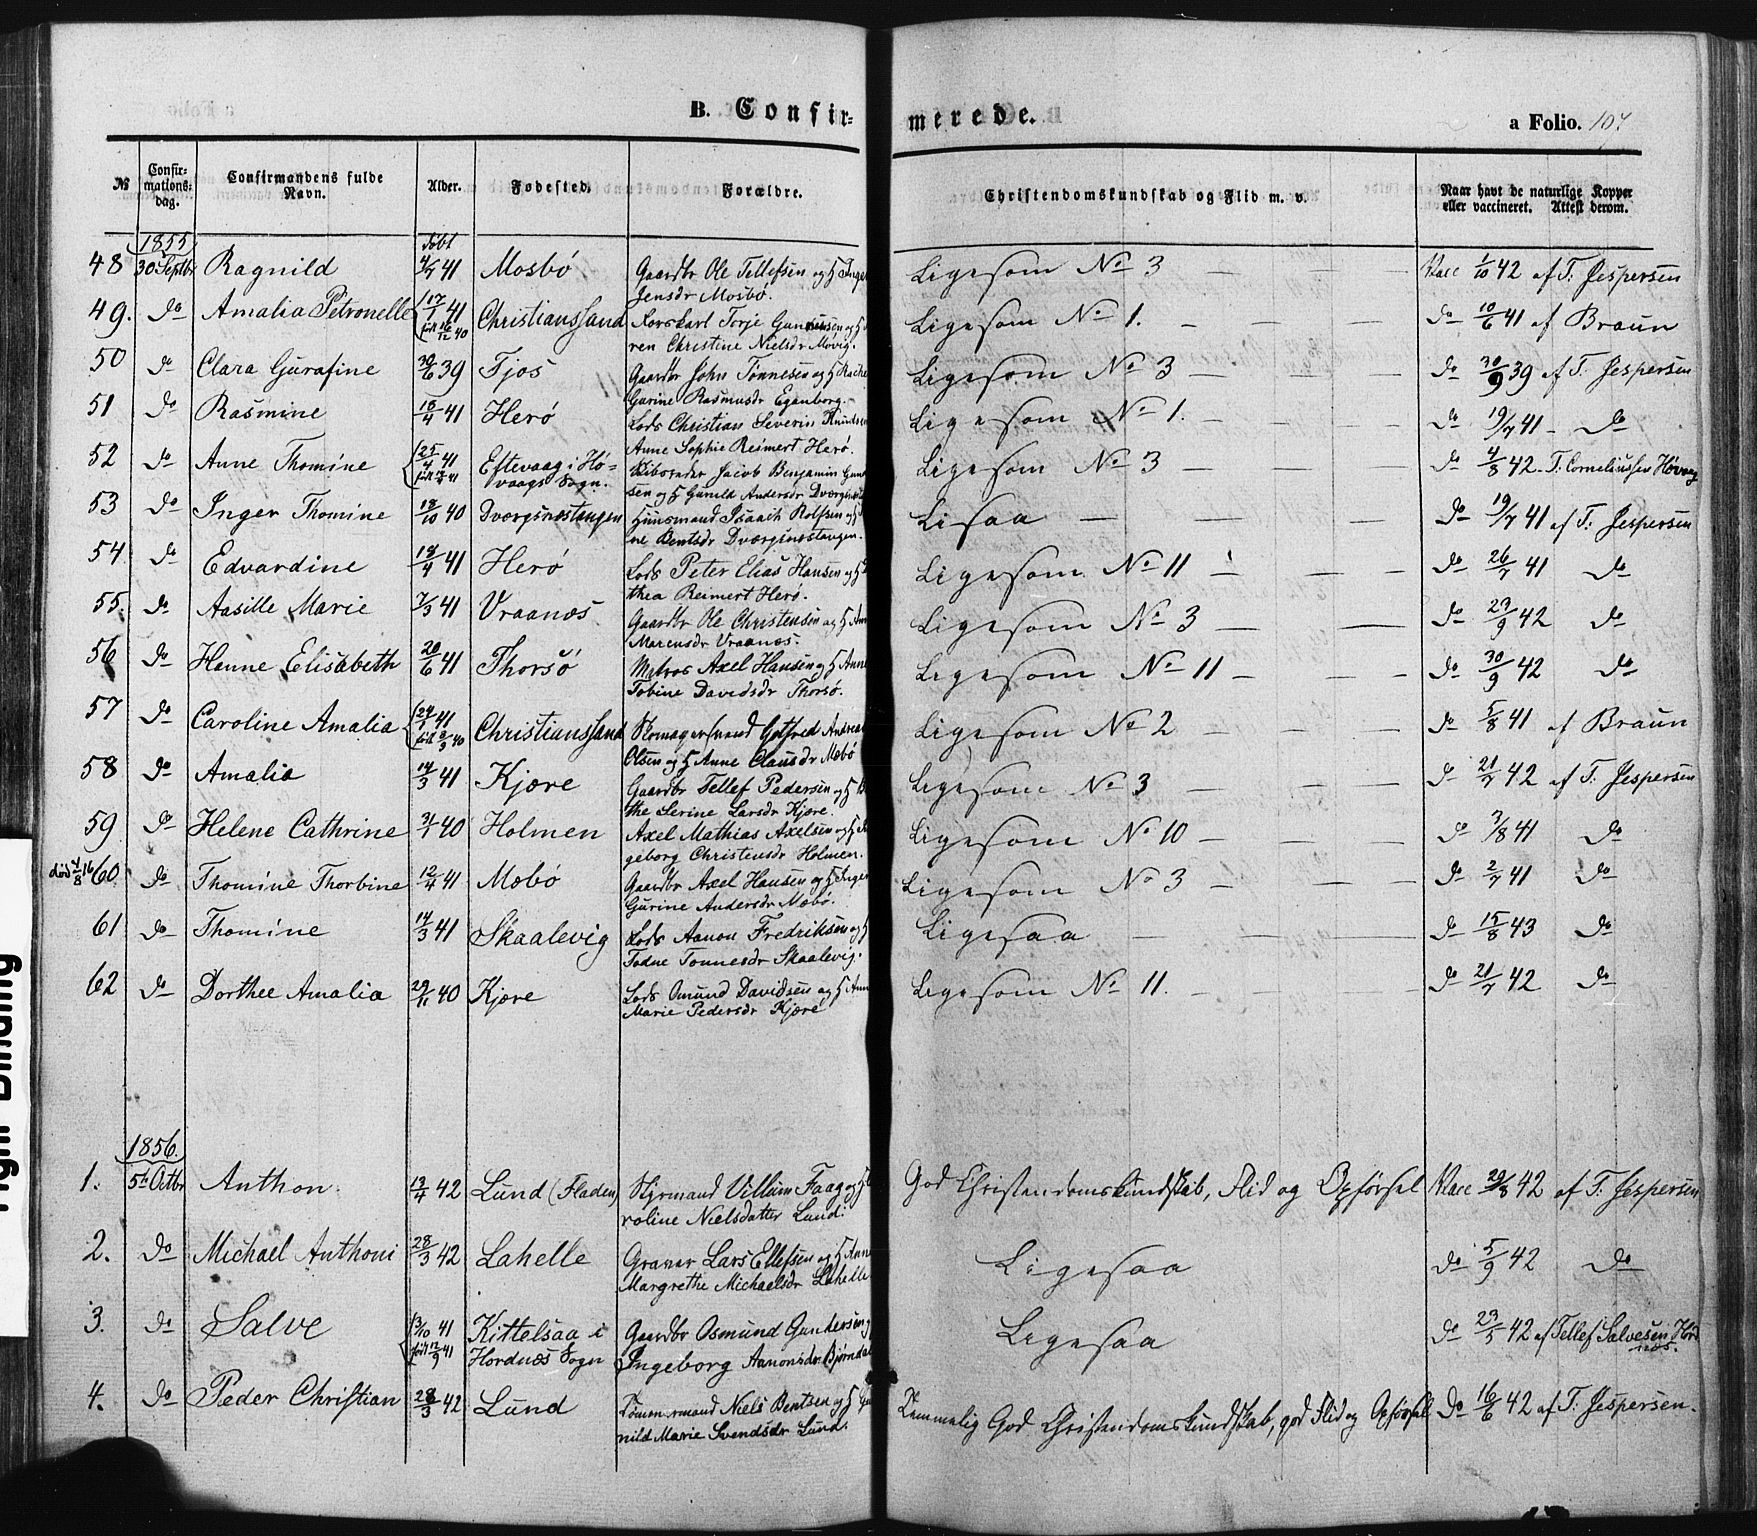 B. Confir-
merede.
a Folio. 107
№
Confir-
mations-
dag.
Confirmandens fulde
Navn.
Alder.
Fødested.
Forældre.
Christendomskundskab og Flid m. v.
Naar havt de naturlige Kopper
eller vaccineret. Attest derom.
1855
døbt
48 30 Septbr Ragnild 4/7 41 Mosbø Gaardbr Ole Tellefsen og H Inger
Jensdr Mosbø.
Ligesom No 3 — Vacc 1/10 42 af T. Jespersen
49. do Amalia Petronelle 17/1 41 født 16/12 40 Christianssand Korskarl Torje
ren Christine Nielsdr Møvig.
Ligesom No 1. — do 10/6 41 af Braun
50 do Clara Gurafine 30/6 39 Tjos Gaardbr John Tønnesen og H
Garine Rasmusdr Eganborg.
Ligesom No 3 — do 30/9 39 af T. Jespersen
51 do Rasmine 18/4 41 Herø Lods Christian Severin Knudsen
Anne Sophie Reimert Herø.
Ligesom No 1. — do 19/7 41 — do
52 do Anne Thomine 25/4 41 Eftevaag i Hø-
vaags Sogn. Jacob Benjamin
sen og H Gunild Andersdr
Ligesom No 3 — do 4/8 42 — T. Corneliussen Høvaag
53 do Inger Thomine 18/10 40 Dvergsnæstangen Huusmand Isaach Rolfsen og H
ne Bentsdr Dvergsnæstangen.
Lisaa — do 19/7 41 af T. Jespersen
54. do Edvardine 18/4 41 Herø Lods Peter Elias Hansen og H
thea Reimert Herø.
Ligesom No 11 — do 26/7 41 do
55. do Aasille Marie 7/3 41 Vraanæs Gaardbr Ole Christensen og H
Marensdr Vraanæs.
Ligesom No 3 — do 23/9 42 do
56 do Hanne Elisabeth 20/6 41 Thorsø Matros Axel Hansen og H Anne
Tobine Davidsdr Thorsø.
Ligesom No 11 — do 30/9 42 do
57 do Caroline Amalia 24/1 41 Christianssand Skomagersvend Gotfred Andreas
Olsen og H Anne Clausdr Mæbø
Ligesom No 2 — do 5/8 41 af Braun
58 do Amalia 14/3 41 Kjøre Gaardbr Tellef Pedersen og H
the Serine Larsdr Kjøre.
Ligesom No 3 — do 21/7 42 af T. Jespersen
59 do Helene Cathrine 31/1 40 Holmen Axel Mathias Axelsen og H
geborg Christensdr Holmen.
Ligesom No 10 — do 7/8 41 do
60. do Thomine Thorbine 12/4 41 Mæbø Gaardbr Axel Hansen og H Inger
Gurine Andersdr Mæbø.
Ligesom No 3 — do 2/7 41 do
61 do Thomine 14/3 41 Skaalevig Lods Aanon Fredriksen og H
Todne Tønnesdr Skaalevig.
Ligesaa — do 15/8 43 do
62 do Dorthee Amalia 29/11 40 Kjøre Lods Omund Davidsen og H Ann
Marie Pedersdr Kjøre
Ligesom No 11. — do 21/7 42 do
1856.
1. 5t Octbr Anthon 13/4 42 Lund (Fladen) Styrmand Villum Faag og H
roline Nielsdatter Lund.
God Christendomskundskab, Flid og Opførsel Vacc 29/8 42 af T. Jespersen
2. do Michael Anthoni 28/3 42 Lahelle Graver Lars Ellefsen og H Anne
Margrethe Michaelsdr Lahelle
Ligesaa do 5/9 42 do
3. do Salve 3/10 41 født 12/9 41 Kittelsaa i
Hordnæs Sogn Gaardbr Osmund Guntersen
Ingeborg Aanonsdr Bjørndal
Ligesaa do 23/5 42 af Tellef Salvesen Hord
næs.
4. do Peder Christian 28/3 42 Lund Tømmermand Niels Bentsen og H
nild Marie Svendsdr Lund.
Temmelig God Christendomskundskab, god Flid og Opførsel do 16/6 42 af T. Jespersen.